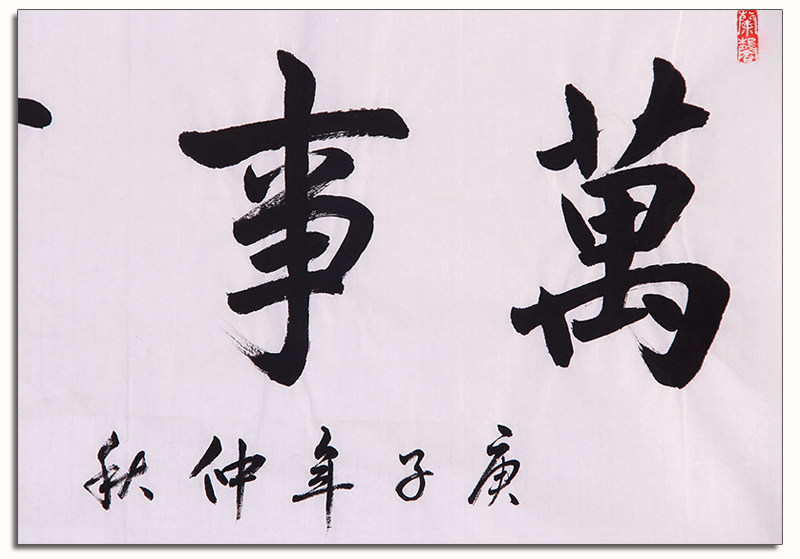 萬事
庚子年仲秋